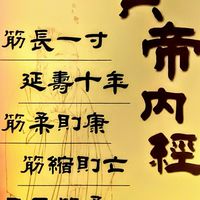 帝內經
筋長一寸
延壽十年
筋柔則康
筋縮則亡